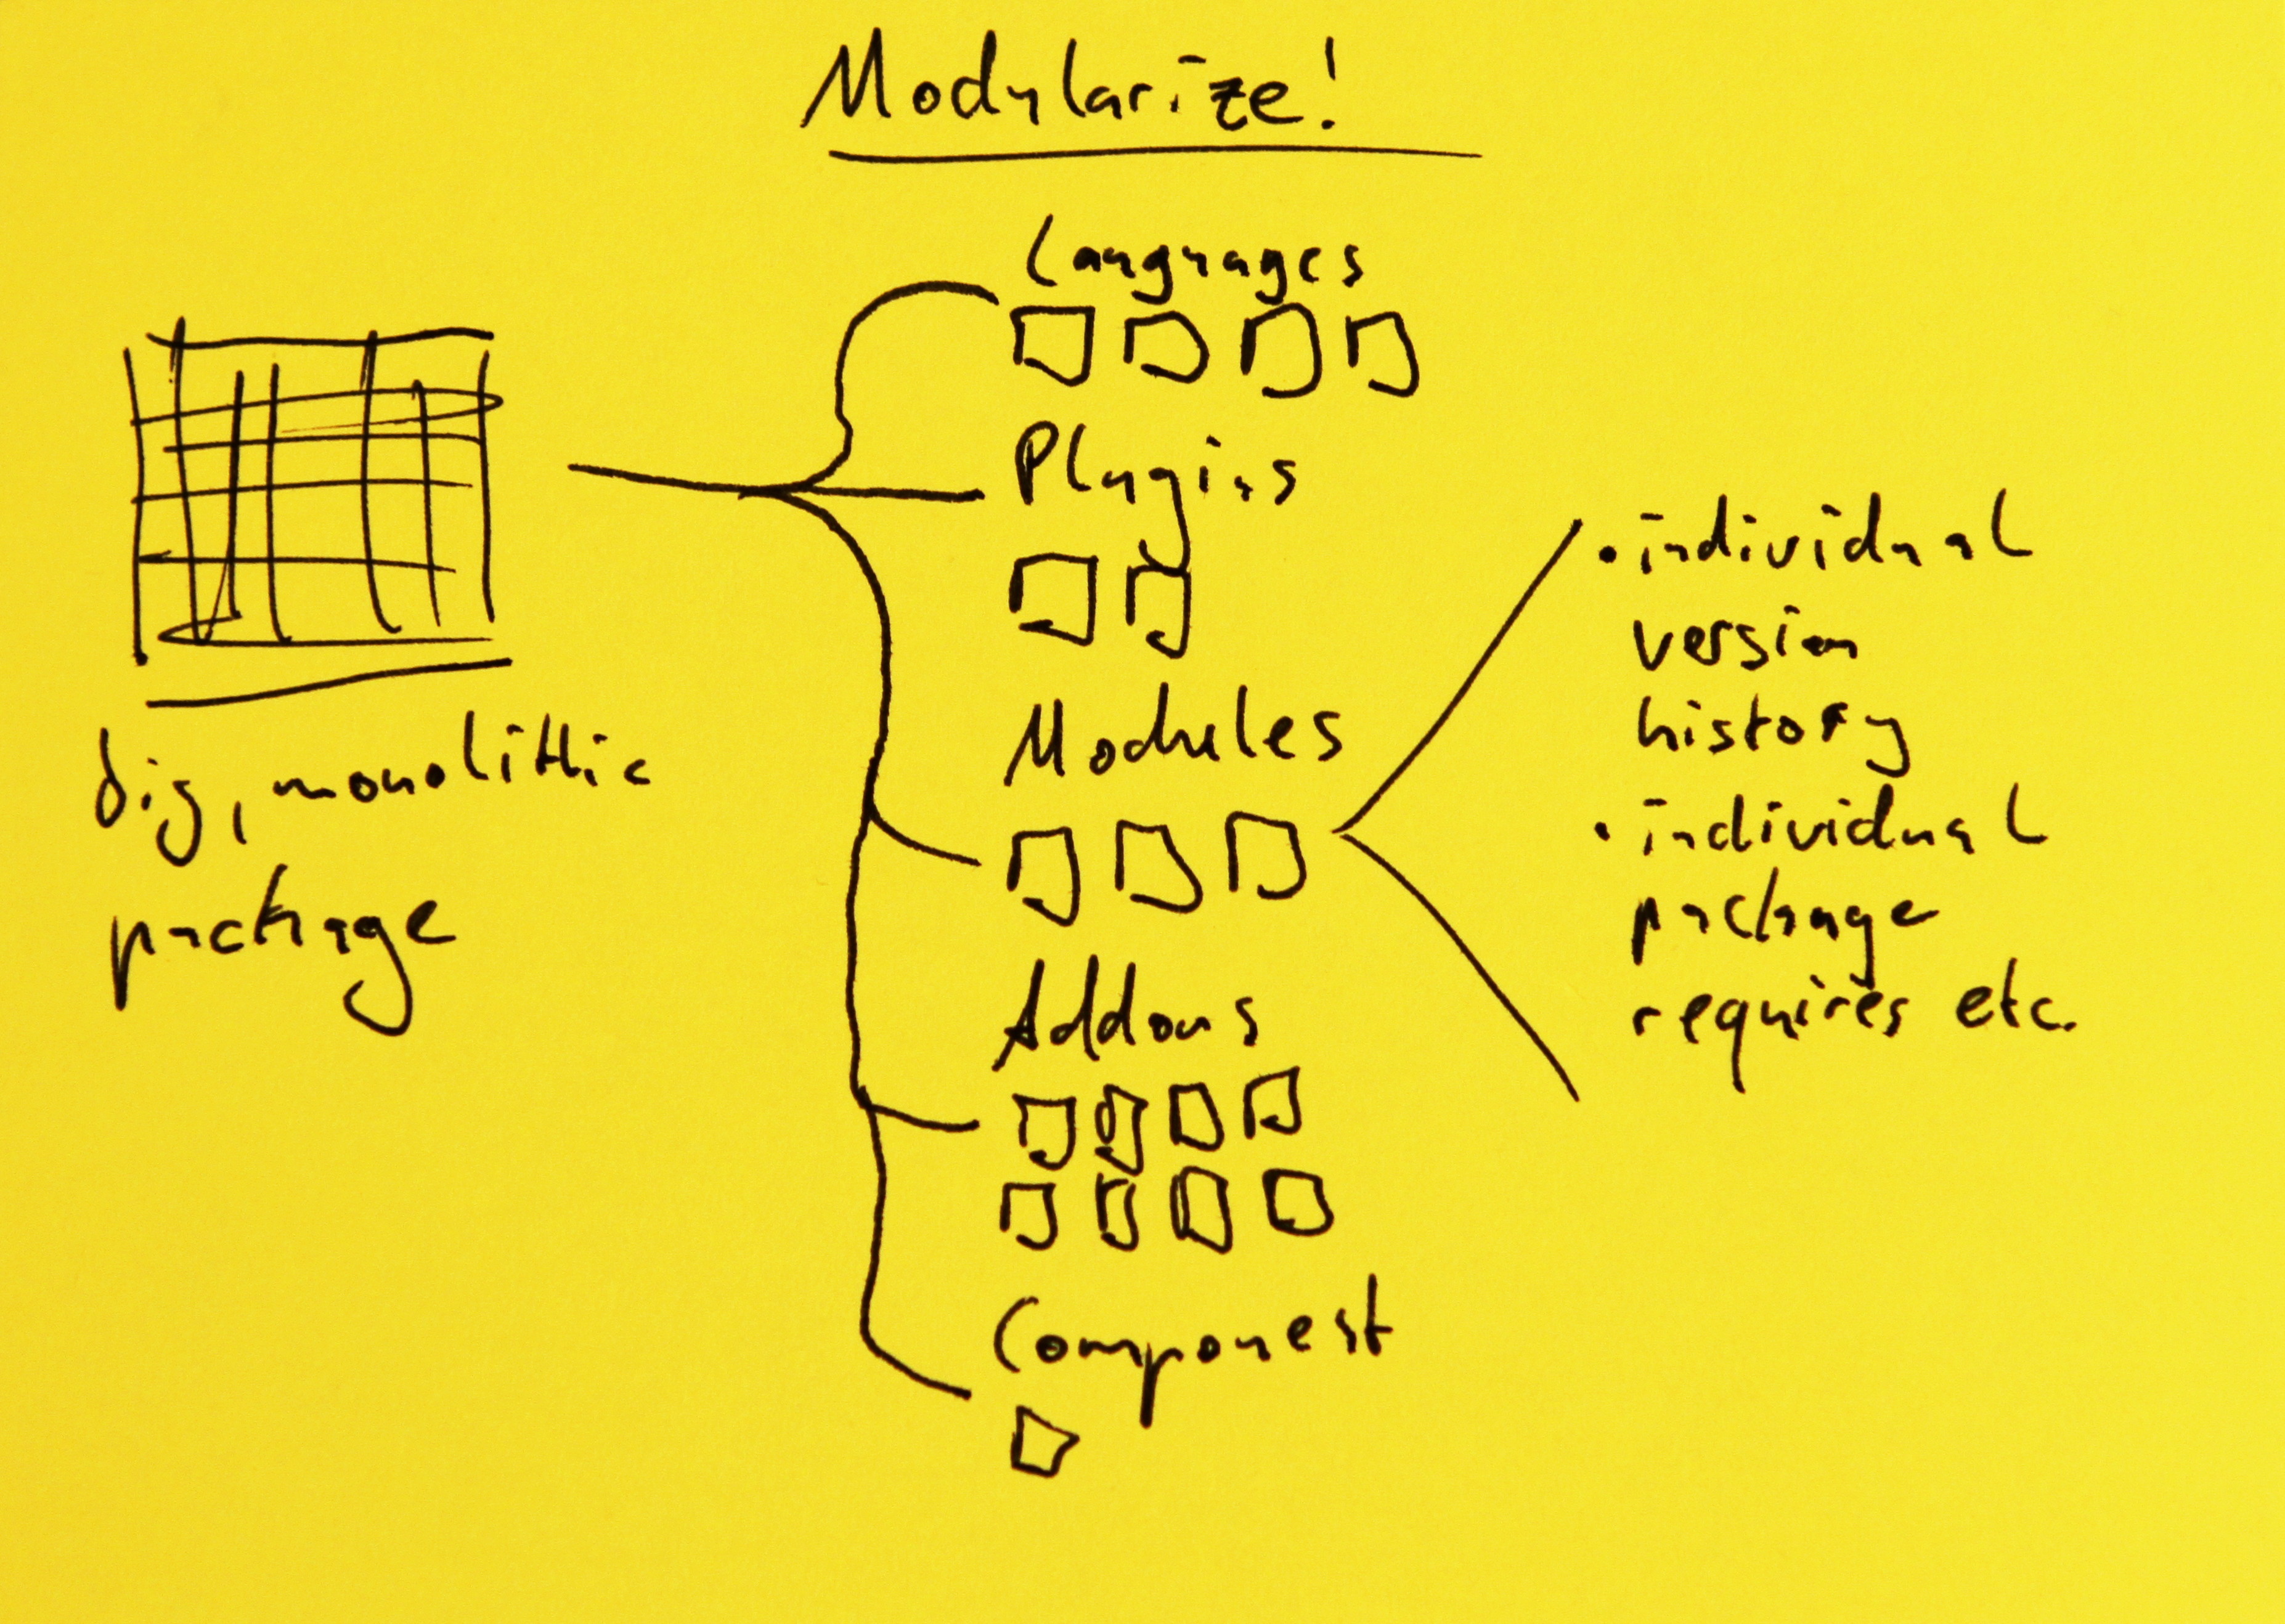 Modularize!
big, monolithic
package
Languages
Plugins
Modules
Addons
Component
• individual
version
history
• individual
package
requires etc.